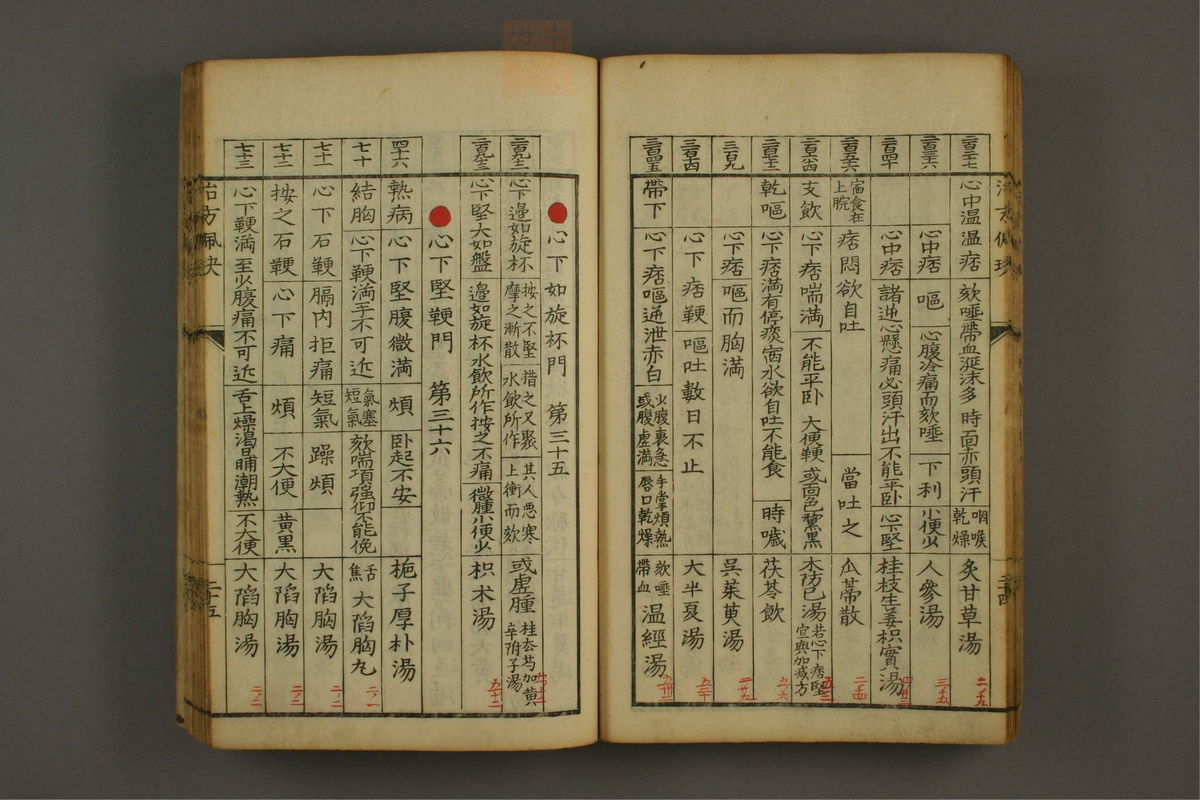 心中温温痞 欬唾帶血涎沫多 時面赤頭汗 咽喉乾燥 炙甘草湯
心中痞 嘔 心腹冷痛而欬唾 下利 小便少 人參湯
心中痞 諸逆心懸痛必頭汗出不能平卧 心下堅 桂枝生姜枳實湯
宿食在上脘 痞悶欲自吐 當吐之 瓜蒂散
支飲 心下痞喘滿 不能平卧 大便鞕 或面色黧黑 木防已湯 若心下痞堅宜與加减方
乾嘔 心下痞滿有停痰宿水欲自吐不能食 時噦 茯苓飲
三百九 心下痞 嘔而胸滿 吳茱萸湯
心下痞鞕 嘔吐數日不止 大半夏湯
帶下 心下痞嘔逆泄赤白 火腹裏急或腹虛滿 手掌煩熱唇口乾燥 欬唾帶血 温經湯
心下如旋杯門 第三十五
心下邊如旋杯 按之不堅摩之漸散 措之又聚水飲所作 其人惡寒上衝而欬 或虛腫 桂枩芍加黄辛附子湯
心下堅大如盤 邊如旋杯水飲所作按之不痛 微腫小便少 枳朮湯
心下堅鞕門 第三十六
四十六 熱病 心下堅腹微滿 煩 卧起不安 梔子厚朴湯
七十 結胸 心下鞕滿手不可近 氣塞短氣 欬喘項強仰不能俛 舌焦 大陷胸丸
七十一 心下石鞕 膈内拒痛 短氣 躁煩 大陷胸湯
七十二 按之石鞕 心下痛 煩 不大便 黄黑 大陷胸湯
七十三 心下鞕滿 至少腹痛不可近 舌上燥渴日晡潮熱 不大便 大陷胸湯
治方佩決
二十五